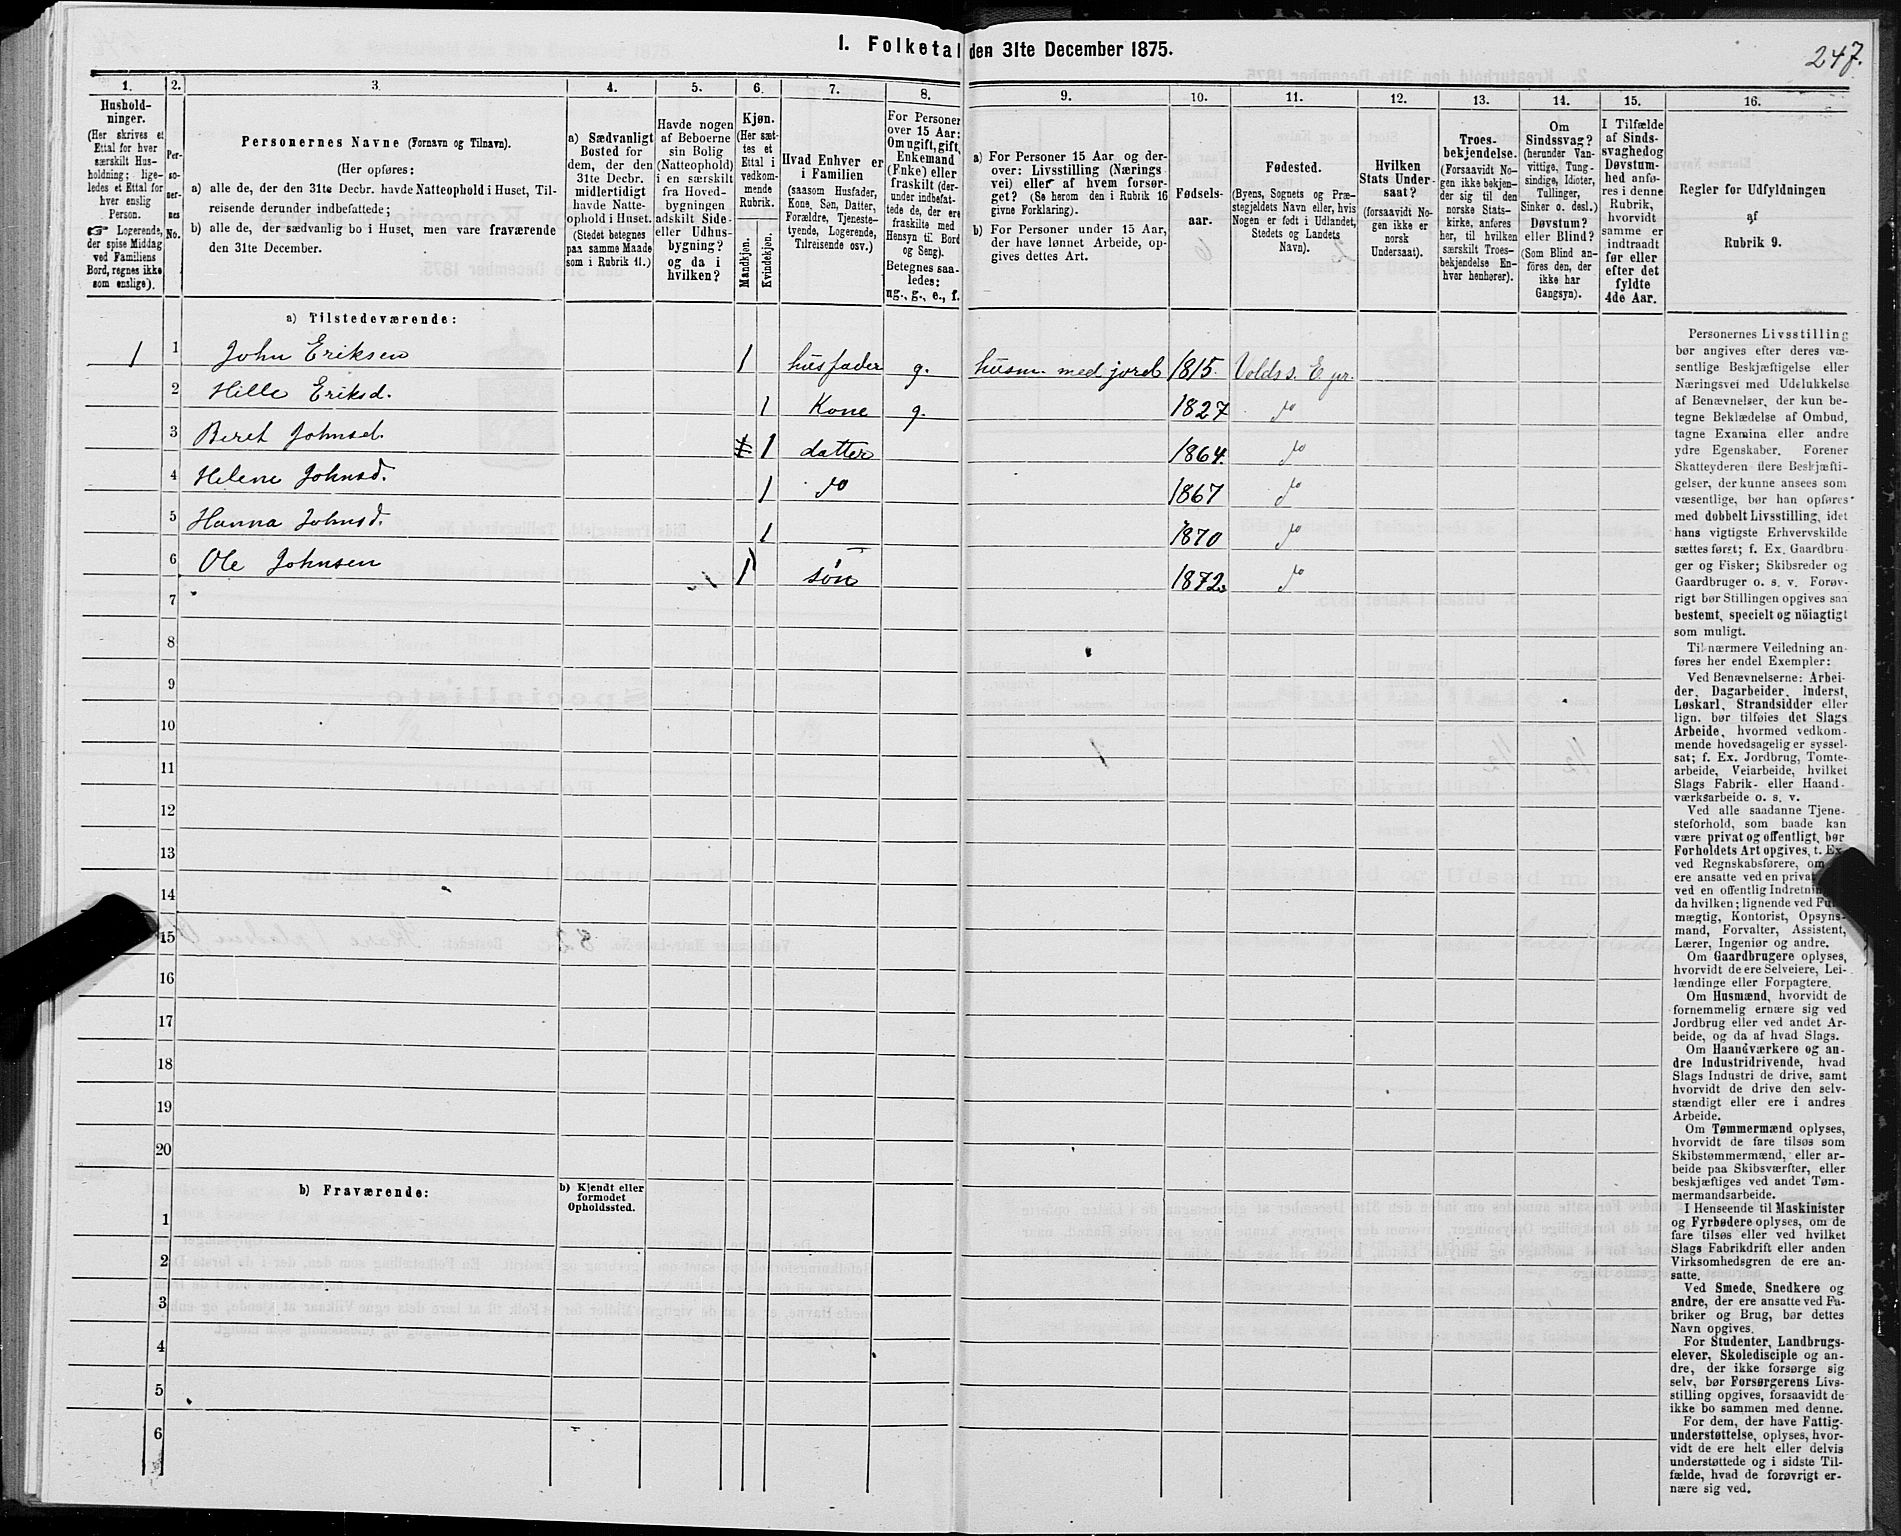 I. Folketal den 31te December 1875.
247.
1.
Hushold-
ninger.
(Her skrives et
Ettal for hver
særskilt Hus-
holdning; lige-
ledes et Ettal for
hver enslig
Person.
Logerende,
der spise Middag
ved Familiens
Bord, regnes ikke
som enslige).
2.
Per-
so-
ner-
nes
No.
3.
Personernes Navne (Fornavn og Tilnavn).
(Her opføres:
a) alle de, der den 31te Decbr. havde Natteophold i Huset, Til-
reisende derunder indbefattede;
b) alle de, der sædvanlig bo i Huset, men vare fraværende
den 31te December.
4.
a) Sædvanligt
Bosted for
dem, der den
31te Decbr.
midlertidigt
havde Natte-
ophold i Huset.
(Stedet betegnes
paa samme Maade
som i Rubrik 11.)
5.
Havde nogen
af Beboerne
sin Bolig
(Natteophold)
i en særskilt
fra Hoved-
bygningen
adskilt Side-
eller Udhus-
bygning?
og da i
hvilken?
6.
Kjøn.
(Her sæt-
tes et
Ettal i
vedkom-
mende
Rubrik.
Mandkjøn.
Kvindekjøn.
7.
Hvad Enhver er
i Familien
(saasom Husfader,
Kone, Søn, Datter,
Forældre, Tjeneste-
tyende, Logerende,
Tilreisende osv.)
8.
For Personer
over 15 Aar:
Om ugift, gift,
Enkemand
(Enke) eller
fraskilt (der-
under indbefat-
tede de, der ere
fraskilte med
Hensyn til Bord
og Seng).
Betegnes saa-
ledes:
ug., g., e., f.
9.
a) For Personer 15 Aar og der-
over: Livsstilling (Nærings-
vei) eller af hvem forsør-
get? (Se herom den i Rubrik 16
givne Forklaring).
b) For Personer under 15 Aar,
der have lønnet Arbeide, op-
gives dettes Art.
10.
Fødsels-
aar.
11.
Fødested.
(Byens, Sognets og Præ-
stegjeldets Navn eller, hvis
Nogen er født i Udlandet,
Stedets og Landets
Navn).
12.
Hvilken
Stats Under-
saat?
(forsaavidt No-
gen ikke er
norsk
Undersaat).
13.
Troes-
bekjendelse.
(Forsaavidt No-
gen ikke bekjen-
der sig til den
norske Stats-
kirke, anføres
her, til hvilken
særskilt Troes-
bekjendelse En-
hver henhører).
14.
Om
Sindssvag?
(herunder Van-
vittige, Tung-
sindige, Idioter,
Tullinger,
Sinker o. desl.)
Døvstum?
eller Blind?
(Som Blind an-
føres den, der
ikke har
Gangsyn).
15.
I Tilfælde
af Sinds-
svaghed og
Døvstum-
hed anfø-
res i denne
Rubrik,
hvorvidt
samme er
indtraadt
før eller
efter det
fyldte
4de Aar.
16.
Regler for Udfyldningen
af
Rubrik 9.
a) Tilstedeværende:
1 1 John Eriksen 1 husfader g. husm. med jord 1815. Volds s. E. pr.
2 Hille Eriksd. 1 Kone g. 1827 do
3 Beret Johnsd. 1 datter 1864. do
4 Helene Johnsd. 1 do 1867 do
5 Hanna Johnsd. 1 1870 do
6 Ole Johnsen 1 søn 1872. do
7
8
9
10
11
12
13
14
15
16
17
18
19
20
b) Fraværende:
b) Kjendt eller
formodet
Opholdssted.
1
2
3
4
5
6
Personernes Livsstilling
bør angives efter deres væ-
sentlige Beskjæftigelse eller
Næringsvei med Udelukkelse
af Benævnelser, der kun be-
tegne Beklædelse af Ombud,
tagne Examina eller andre
ydre Egenskaber. Forener
Skatteyderen flere Beskjæfti-
gelser, der kunne ansees som
væsentlige, bør han opføres
med dobbelt Livsstilling, idet
hans vigtigste Erhvervskilde
sættes først; f. Ex. Gaardbru-
ger og Fisker; Skibsreder og
Gaardbruger o. s. v. Forøv-
rigt bør Stillingen opgives saa
bestemt, specielt og nöiagtigt
som muligt.
Til nærmere Veiledning an-
føres her endel Exempler:
Ved Benævnelserne: Arbei-
der, Dagarbeider, Inderst,
Løskarl, Strandsidder eller
lign. bør tilføies det Slags
Arbeide, hvormed vedkom-
mende hovedsagelig er syssel-
sat; f. Ex. Jordbrug, Tomte-
arbeide, Veiarbeide, hvilket
Slags Fabrik- eller Haand-
værksarbeide o. s. v.
Ved alle saadanne Tjene-
steforhold, som baade kan
være privat og offentligt, bør
Forholdets Art opgives, t. Ex.
ved Regnskabsførere, om
ere ansatte ved en privat
ved en offentlig Indretning
da hvilken; lignende ved Fuld-
mægtig, Kontorist, Opsyns-
mand, Forvalter, Assistent,
Lærer, Ingeniør og andre.
Om Gaardbrugere oplyses,
hvorvidt de ere Selveiere, Lei-
lændinge eller Forpagtere.
Om Husmænd, hvorvidt de
fornemmelig ernære sig ved
Jordbrug eller ved andet Ar-
beide, og da af hvad Slags.
Om Haandværkere og an-
dre Industridrivende, hvad
Slags Industri de drive, samt
hvorvidt de drive den selv-
stændigt eller ere i andres
Arbeide.
Om Tømmermænd oplyses,
hvorvidt de fare tilsøs som
Skibstømmermænd, eller ar-
beide paa Skibsværfter, eller
beskjæftiges ved andet Tøm-
mermandsarbeide.
I Henseende til Maskinister
og Fyrbødere oplyses, om de
fare tilsøs eller ved hvilket
Slags Fabrikdrift eller anden
Virksomhedsgren de ere an-
satte.
Ved Smede, Snedkere og
andre, der ere ansatte ved Fa-
briker og Brug, bør dettes
Navn opgives.
For Studenter, Landbrugs-
elever, Skoledisciple og an-
dre, der ikke forsørge sig
selv, bør Forsørgerens Livs-
stilling opgives, forsaavidt de
ikke bo sammen med denne.
For dem, der have Fattig-
understøttelse, oplyses, hvor-
vidt de ere helt eller delvis
understøttede og i sidste Til-
fælde, hvad de forøvrigt er-
nære sig ved.